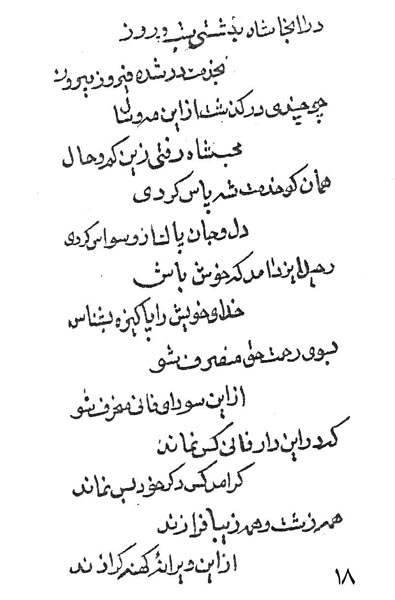 درانجا شاه بذشتی شب و روز
بخذمت در شده فیروز
چو چندی در گذشت از این مه و سال
رفتی زین و حال
همان کو خدمت شه پاس کردی
دل و جان پاک از وسواس کردی
ایزد امد که خوش باش
خدای خویش را پاکیزه بشناس
بسوی رحمت حق منصرف شو
از این سودای فانی منحرف شو
که در این دار فانی کس نماند
کر امد کس دکر خود بس نماند
همه زشت و همه زیبا فرازند
از این ویرانهٔ کهنه کرازند
۱۸